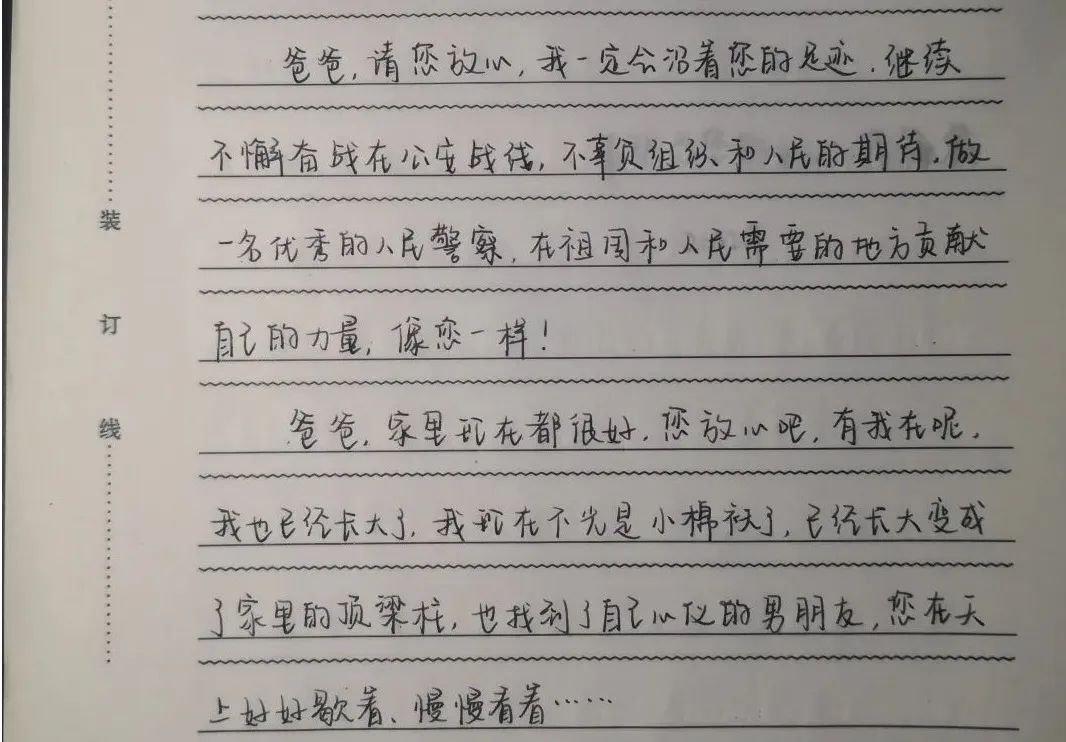 爸爸,请您放心,我一定会沿着您的足迹,继续
不懈奋战在公安战线,不辜负组织和人民的期待,做
一名优秀的人民警察,在祖国和人民需要的地方贡献
自己的力量,像您一样!
爸爸,家里现在都很好,您放心吧,有我在呢,
我也已经长大了,我现在不光是小棉袄了,已经长大变成
了家里的顶梁柱,也找到了自己心仪的男朋友,您在天
上好好歇着、慢慢看着……
装
订
线